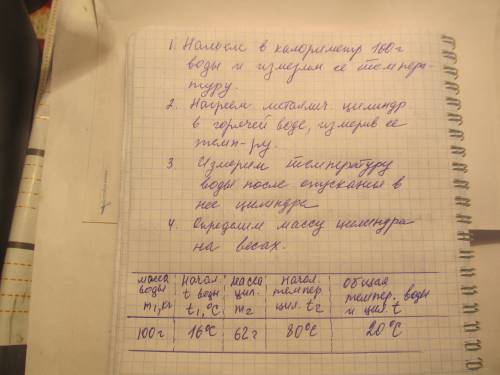 1. Нальем в калориметр 100г
воды и измерим ее темпера-
туру.
2. Нагреем металлич. цилиндр
в горячей воде, измерив ее
темп-ру.
3. Измерим температуру
воды после опускания в
нее цилиндра
4. Определим массу цилиндра
на весах.
масса воды m₁, кг | Начал. t воды t₁, °C | масса цил. m₂ | Начал. темпер. цил. t₂ | общая темпер. воды и цил. t
100г | 16°C | 62г | 80°C | 20°C